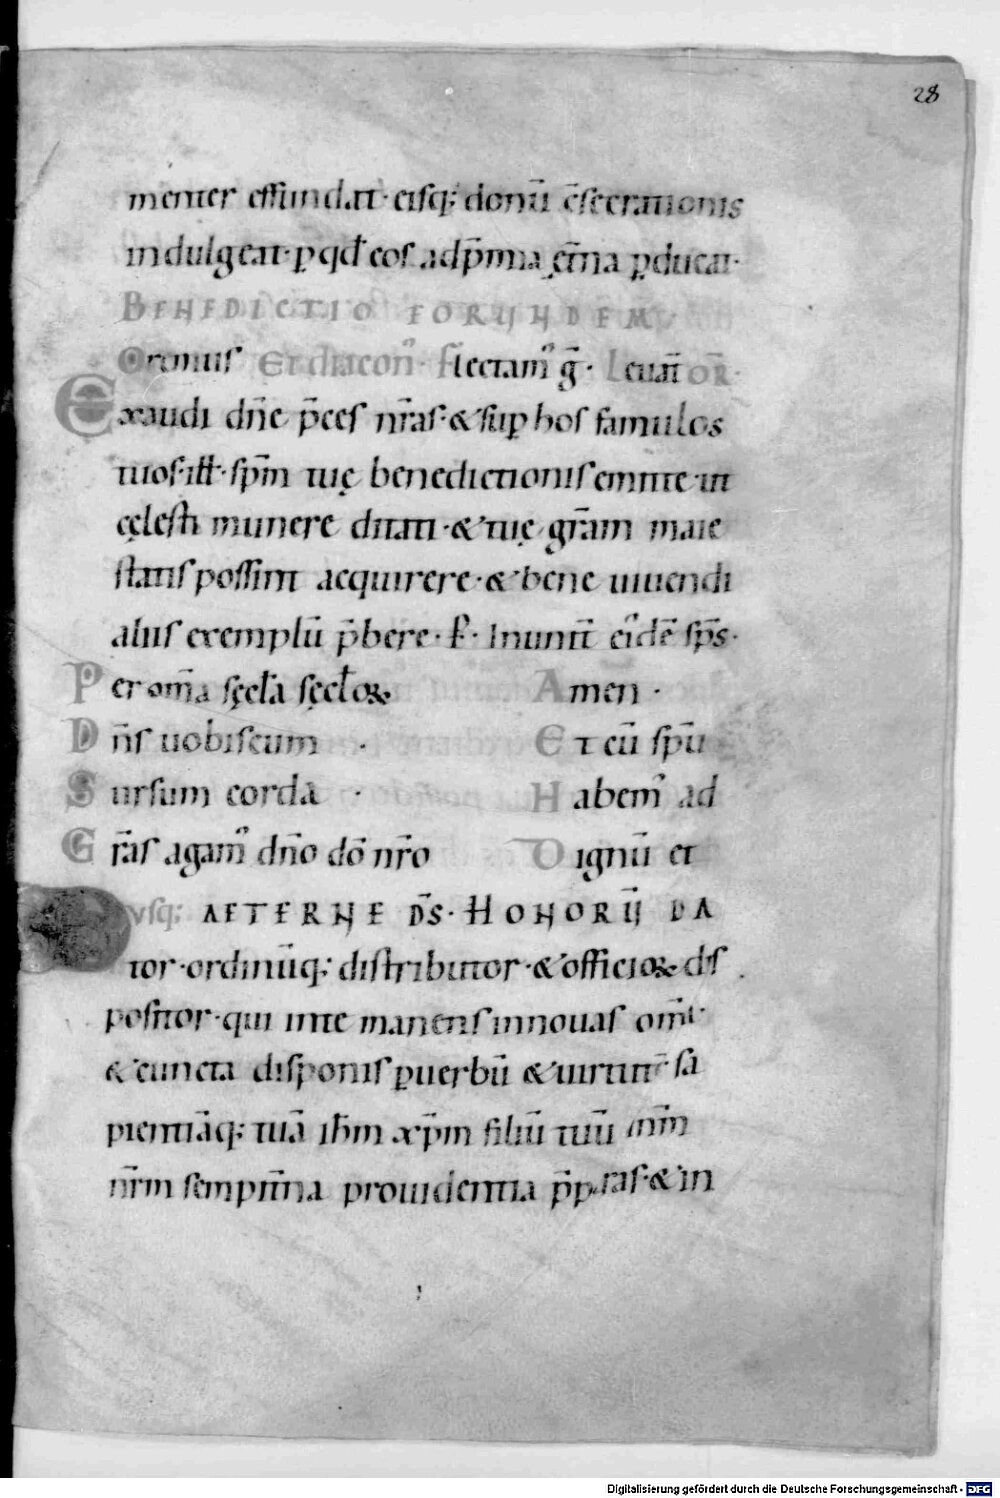 28
menter effundat· eisq; donū c̄secrationis
indulgeat· p qđ eos ad p̄mia ęt̄na ꝑducat·
BENEDICTIO EORUNDEM
Oremus Et diacon᾽ Flectam᾽ ḡ· Leuat̄ or̄·
Exaudi dn̄e p̄ces nr̄as· & sup hos famulos
tuos· ill· sp̄m tuę benedictionis emitte· ut
cęlesti munere ditati· & tuę gr̄am maie
statis possint acquirere· & bene uiuendi
aliis exemplū p̄bere· P· In unit̄ eiᵈdē sp̄s·
Per om̄a sęcla sęcloꝝ Amen·
Dn̄s uobiscum· Et cū spū
Sursum corda· Habem᾽ ad
Gr̄as agam᾽ dn̄o dō nr̄o Dignū et
usq; AETERNE DS̄· HONORŪ DA
tor· ordinūq; distributor· & officioꝝ dis
positor· qui in te manens innouas om̄i·
& cuncta disponis ꝑ uerbū & uirtut̄· sa
pientiāq; tuā ih̄m xp̄m filiū tuū dn̄m
nr̄m sempit̄na prouidentia p̄paras· & in
Digitalisierung gefördert durch die Deutsche Forschungsgemeinschaft - DFG